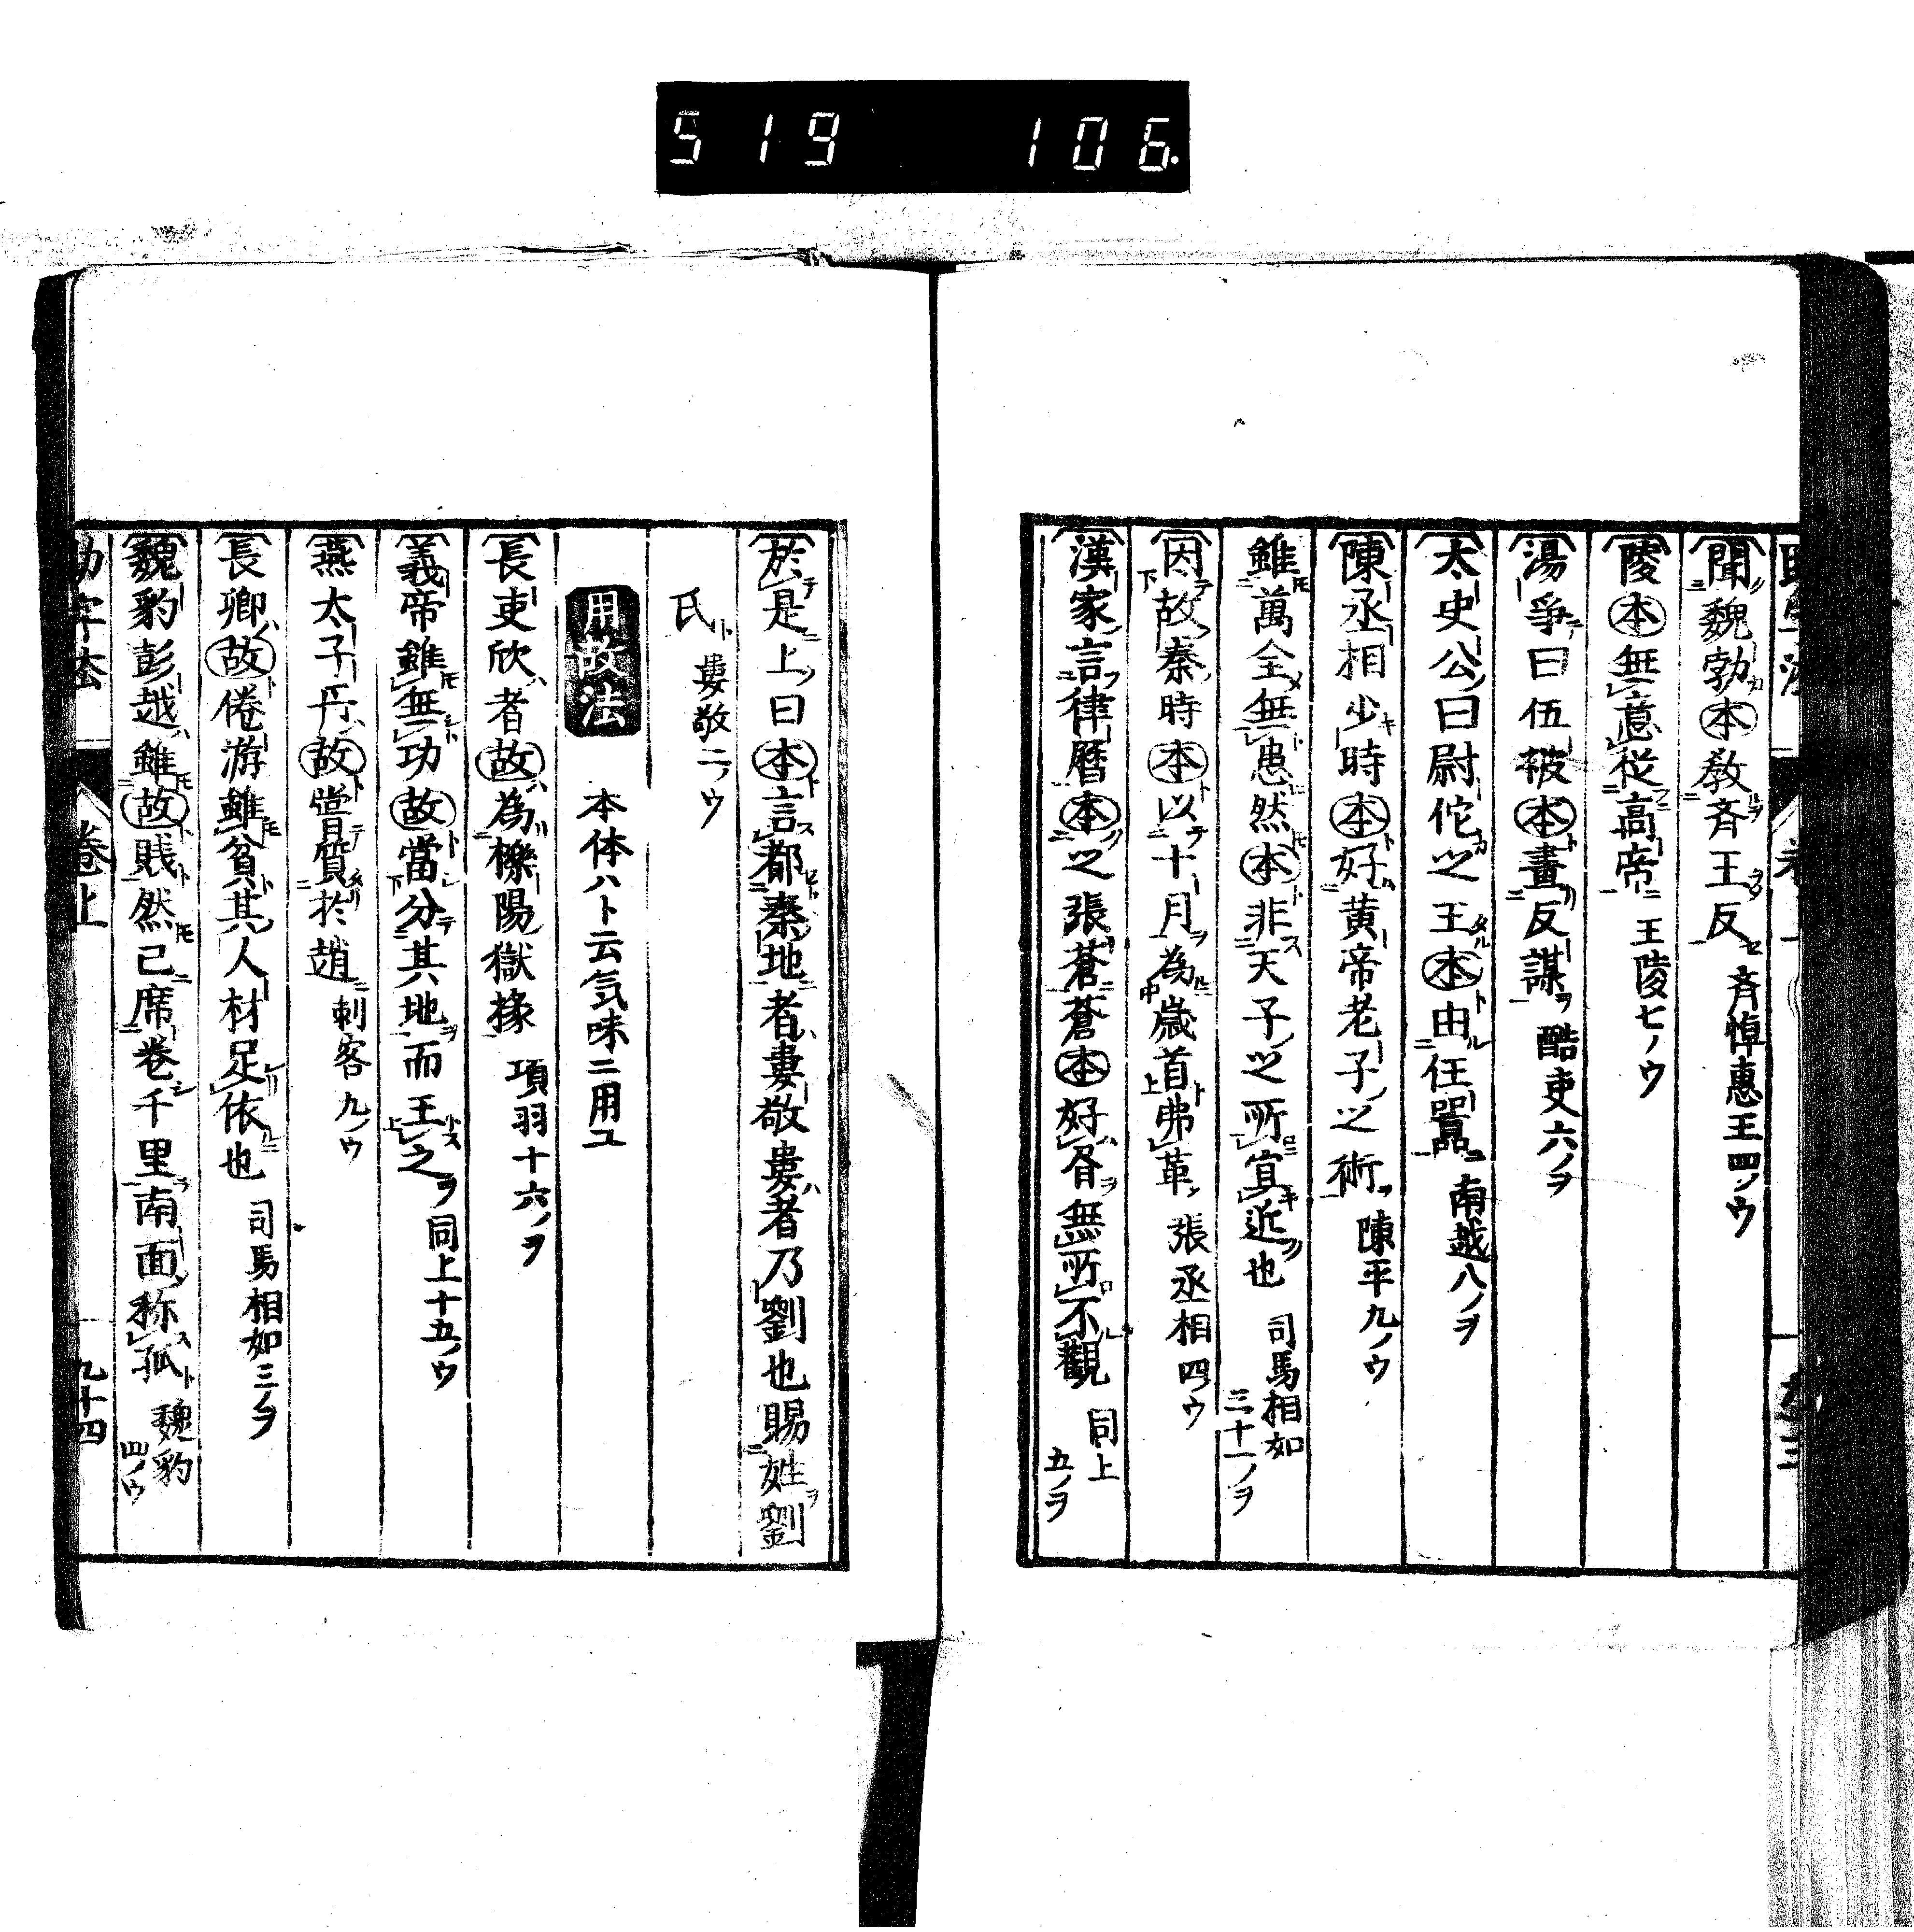 519 106.
聞魏勃本教斉王反 斉悼惠王四ノウ
陵本無意從高帝 王陵七ノウ
湯爭曰伍被本畫反謀 酷吏六ノヲ
太史公曰尉佗之王本由任囂 南越八ノヲ
陳丞相少時本好黄帝老子之術 陳平九ノウ
雖萬全無患然本非天子之所宜近也 司馬相如三十一ノヲ
因故秦時本以十月為歳首弗革 張丞相四ノウ
漢家言律暦本之張蒼蒼本好昏無所不觀 同上五ノヲ
於是上曰本言都秦地者婁敬婁者乃劉也賜姓劉
氏 婁敬二ノウ
用故法 本体ハト云気味ニ用ユ
長吏欣者故為櫟陽獄掾 項羽十六ノヲ
義帝雖無功故當分其地而王之 同上十五ノウ
燕太子丹故嘗質於趙 刺客九ノウ
長卿故倦游雖貧其人材足依也 司馬相如三ノヲ
魏豹彭越雖故賎然已席卷千里南面称孤 魏豹四ノウ
助字法 卷上 九十四